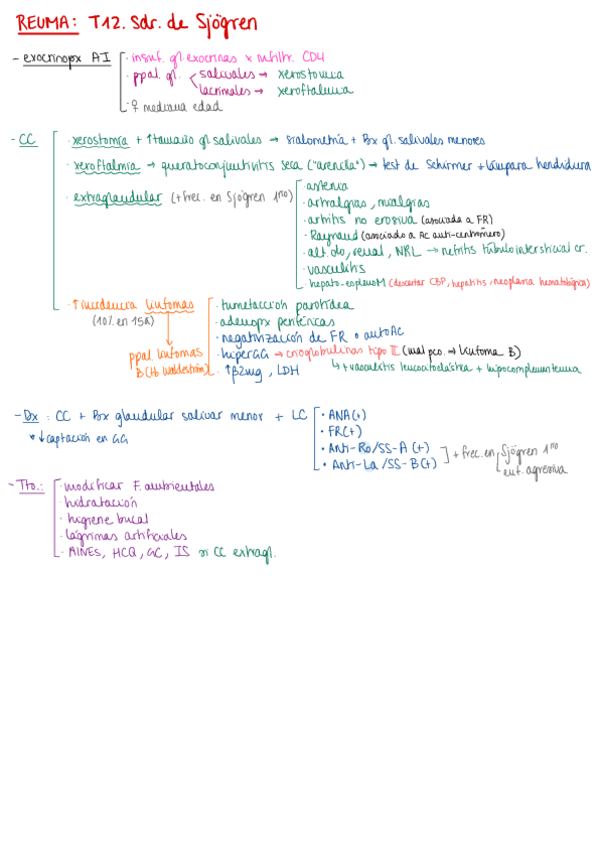 REUMA: T12. Sdr. de Sjögren
- exocrinopx AI
· insuf. gl exocrinas x infiltr. CD4
· ppal. gl. salivales → xerostomia
lacrimales → xeroftalmia
· ♀ mediana edad
- CC
· xerostomía + ↑tamaño gl salivales → sialometría + Bx gl. salivales menores
· xeroftalmia → queratoconjuntivitis seca ("arenilla") → test de Schirmer + lámpara hendidura
· extraglandular (+frec. en Sjögren 1rio)
· astenia
· artralgias, mialgias
· artritis no erosiva (asociada a FR)
· Raynaud (asociado a Ac anti-centrómero)
· alt. dto, renal, NRL → nefritis túbulointersticial cr.
· vasculitis
· hepato-esplenoM (descartar CBP, hepatitis, neoplasia hematológica)
· ↑ incidencia linfomas
(10% en 15A)
ppal linfomas
B (Mb Waldeström)
· tumefacción parotídea
· adenopx periféricas
· negativización de FR o autoAc
· hiperGG → crioglobulinas tipo II (mal pco. → linfoma B)
↳ + vasculitis leucocitoclástica + hipocomplementemia
· ↑ β2mg, LDH
- Dx: CC + Bx glandular salivar menor + LC
* ↓captación en GG
· ANA(+)
· FR(+)
· Anti-Ro/SS-A (+)
· Anti-La/SS-B(+)
+ frec. en Sjögren 1rio
enf. agresiva
- Tto.:
· modificar F. ambientales
· hidratación
· higiene bucal
· lágrimas artificiales
· AINES, HCQ, GC, IS si CC extragl.